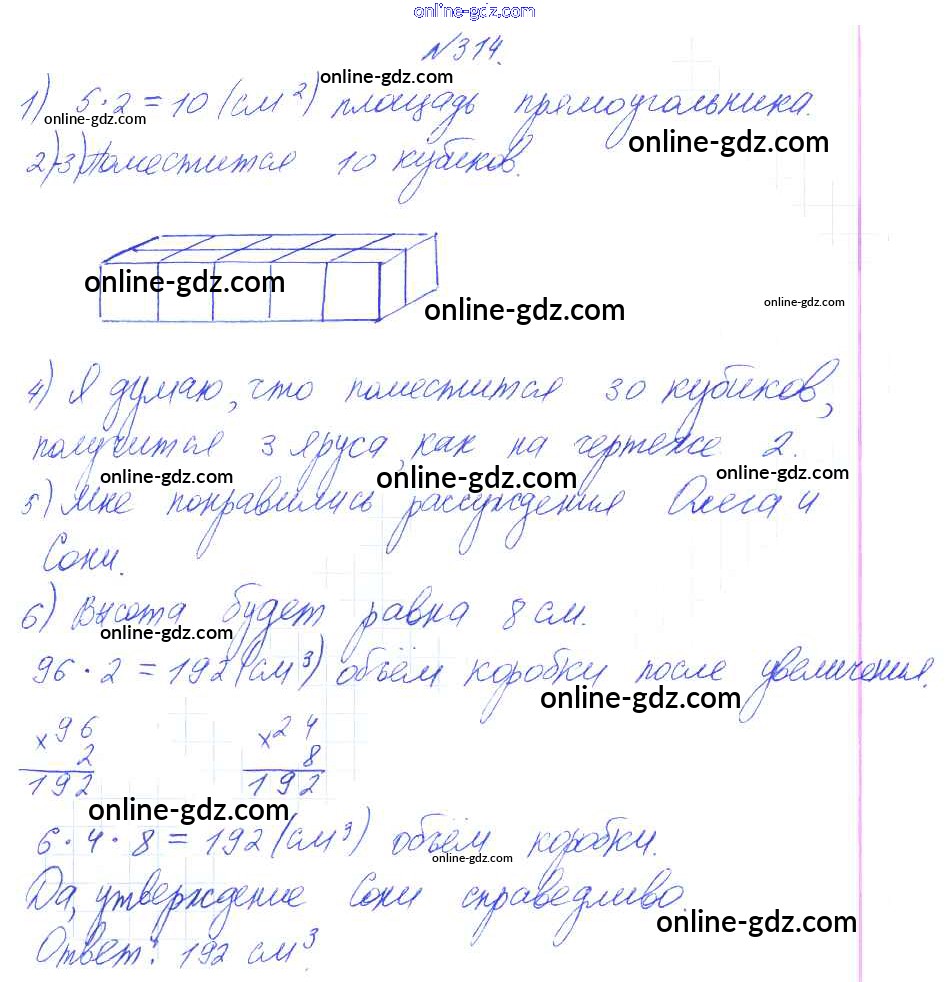 online-gdz.com
№314.
online-gdz.com
1) 5·2=10 (см²) площадь прямоугольника.
online-gdz.com
online-gdz.com
2)-3) Поместится 10 кубиков.
online-gdz.com
online-gdz.com
online-gdz.com
4) Я думаю, что поместится 30 кубиков,
получится 3 яруса, как на чертеже 2.
online-gdz.com
online-gdz.com
online-gdz.com
5) Мне понравились рассуждения Олега и
Сони.
6) Высота будет равна 8 см.
online-gdz.com
96·2=192 (см³) объём коробки после увеличения.
online-gdz.com
×96 ×24
2 8
192 192
online-gdz.com
6·4·8=192 (см³) объём коробки.
online-gdz.com
Да, утверждение Сони справедливо.
online-gdz.com
Ответ: 192 см³.